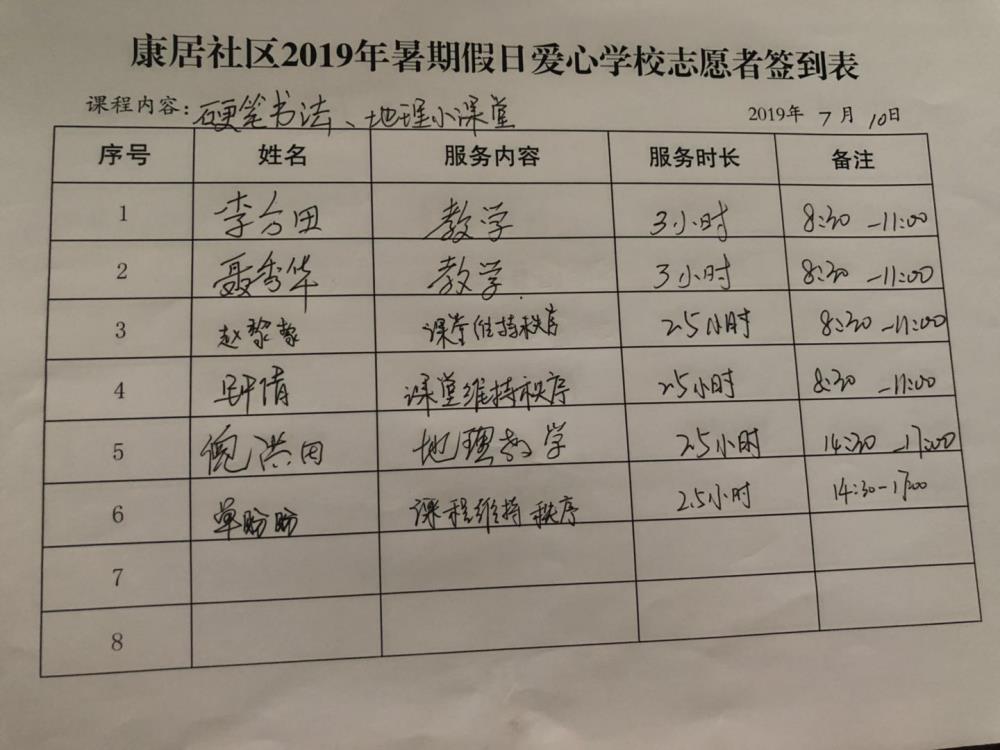 康居社区2019年暑期假日爱心学校志愿者签到表
课程内容:硬笔书法、地理小课堂 2019年 7月 10日
序号 姓名 服务内容 服务时长 备注
1 李方田 教学 3小时 8:30 -11:00
2 聂秀华 教学 3小时 8:30 -11:00
3 赵黎黎 课堂维持秩序 2.5小时 8:30 -11:00
4 倩 课堂维持秩序 2.5小时 8:30 -11:00
5 倪洪田 地理教学 2.5小时 14:30 -17:00
6 单盼盼 课程维持秩序 2.5小时 14:30-17:00
7
8